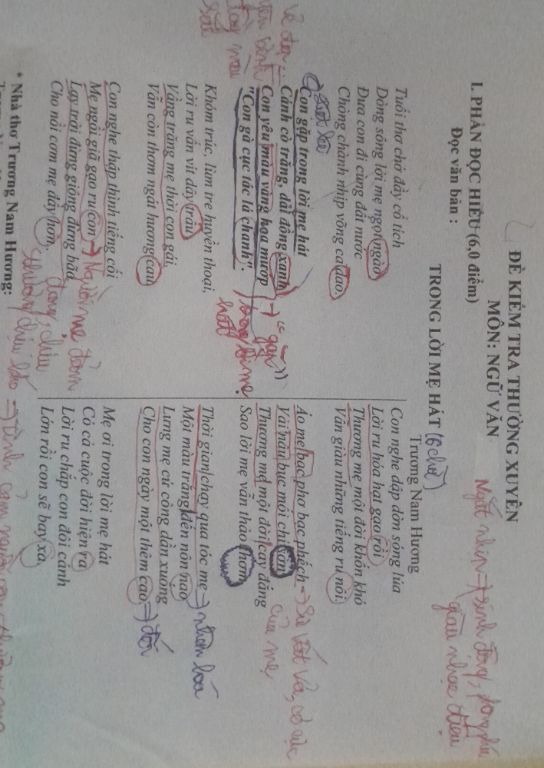 ĐỀ KIỂM TRA THƯỜNG XUYÊN
MÔN: NGỮ VĂN
I. PHẦN ĐỌC HIỂU (6,0 điểm)
Đọc văn bản :
TRONG LỜI MẸ HÁT (6 chữ)
Trương Nam Hương
Tuổi thơ chở đầy cổ tích
Dòng sông lời mẹ ngọt ngào
Đưa con đi cùng đất nước
Chòng chành nhịp võng ca dao
Con gặp trong lời mẹ hát
Cánh cò trắng, dải đồng xanh
Con yêu màu vàng hoa mướp
"Con gà cục tác lá chanh".
Khóm trúc, lùm tre huyền thoại,
Lời ru vấn vít dây trầu
Vầng trăng mẹ thời con gái,
Vẫn còn thơm ngát hương cau
Con nghe thập thình tiếng cối
Mẹ ngồi giã gạo ru con
Lạy trời đừng giông đừng bão
Cho nồi cơm mẹ đầy hơn,
Con nghe dập dờn sóng lúa
Lời ru hóa hạt gạo rồi,
Thương mẹ một đời khốn khó
Vẫn giàu những tiếng ru nôi
Áo mẹ bạc phơ bạc phếch
Vải nâu bục mối chỉ sờn
Thương mẹ một đời cay đắng
Sao lời mẹ vẫn thảo thơm
Thời gian chạy qua tóc mẹ
Một màu trắng đến nôn nao
Lưng mẹ cứ còng dần xuống
Cho con ngày một thêm cao
Mẹ ơi trong lời mẹ hát
Có cả cuộc đời hiện ra
Lời ru chắp con đôi cánh
Lớn rồi con sẽ bay xa.
* Nhà thơ Trương Nam Hương:
Ngắt nhịp → sinh động, phong phú
giàu nhạc điệu
→ Sự vất vả, cơ cực
của mẹ
→ nhân hoá
→ đối
→ Người mẹ đảm
đang, chịu
thương chịu khó
trong lời mẹ
hát